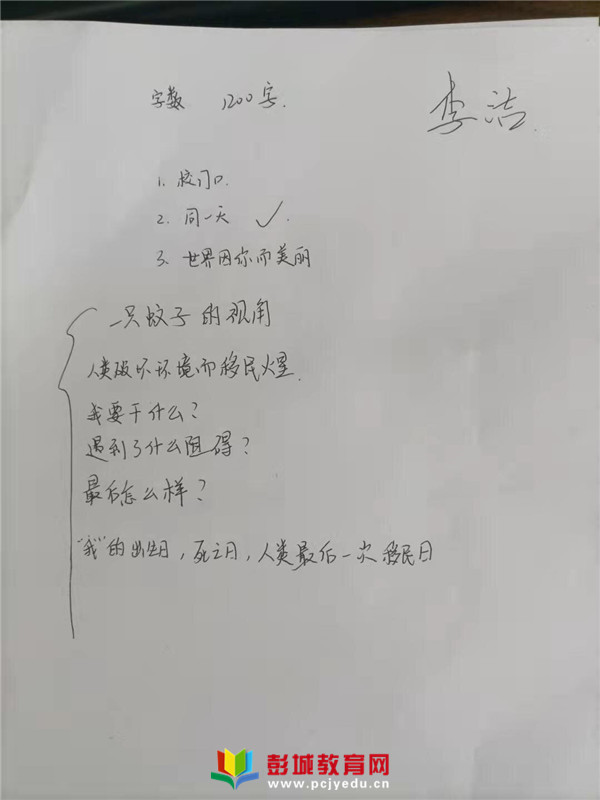 字数 1200字.
李洁.
1. 校门口.
2. 同一天 ✓.
3. 世界因你而美丽
一只蚊子的视角
人类破坏环境而移民火星.
我要干什么?
遇到了什么阻碍?
最后怎么样?
“我”的出生日,死之日,人类最后一次移民日
彭城教育网
www.pcjyedu.cn